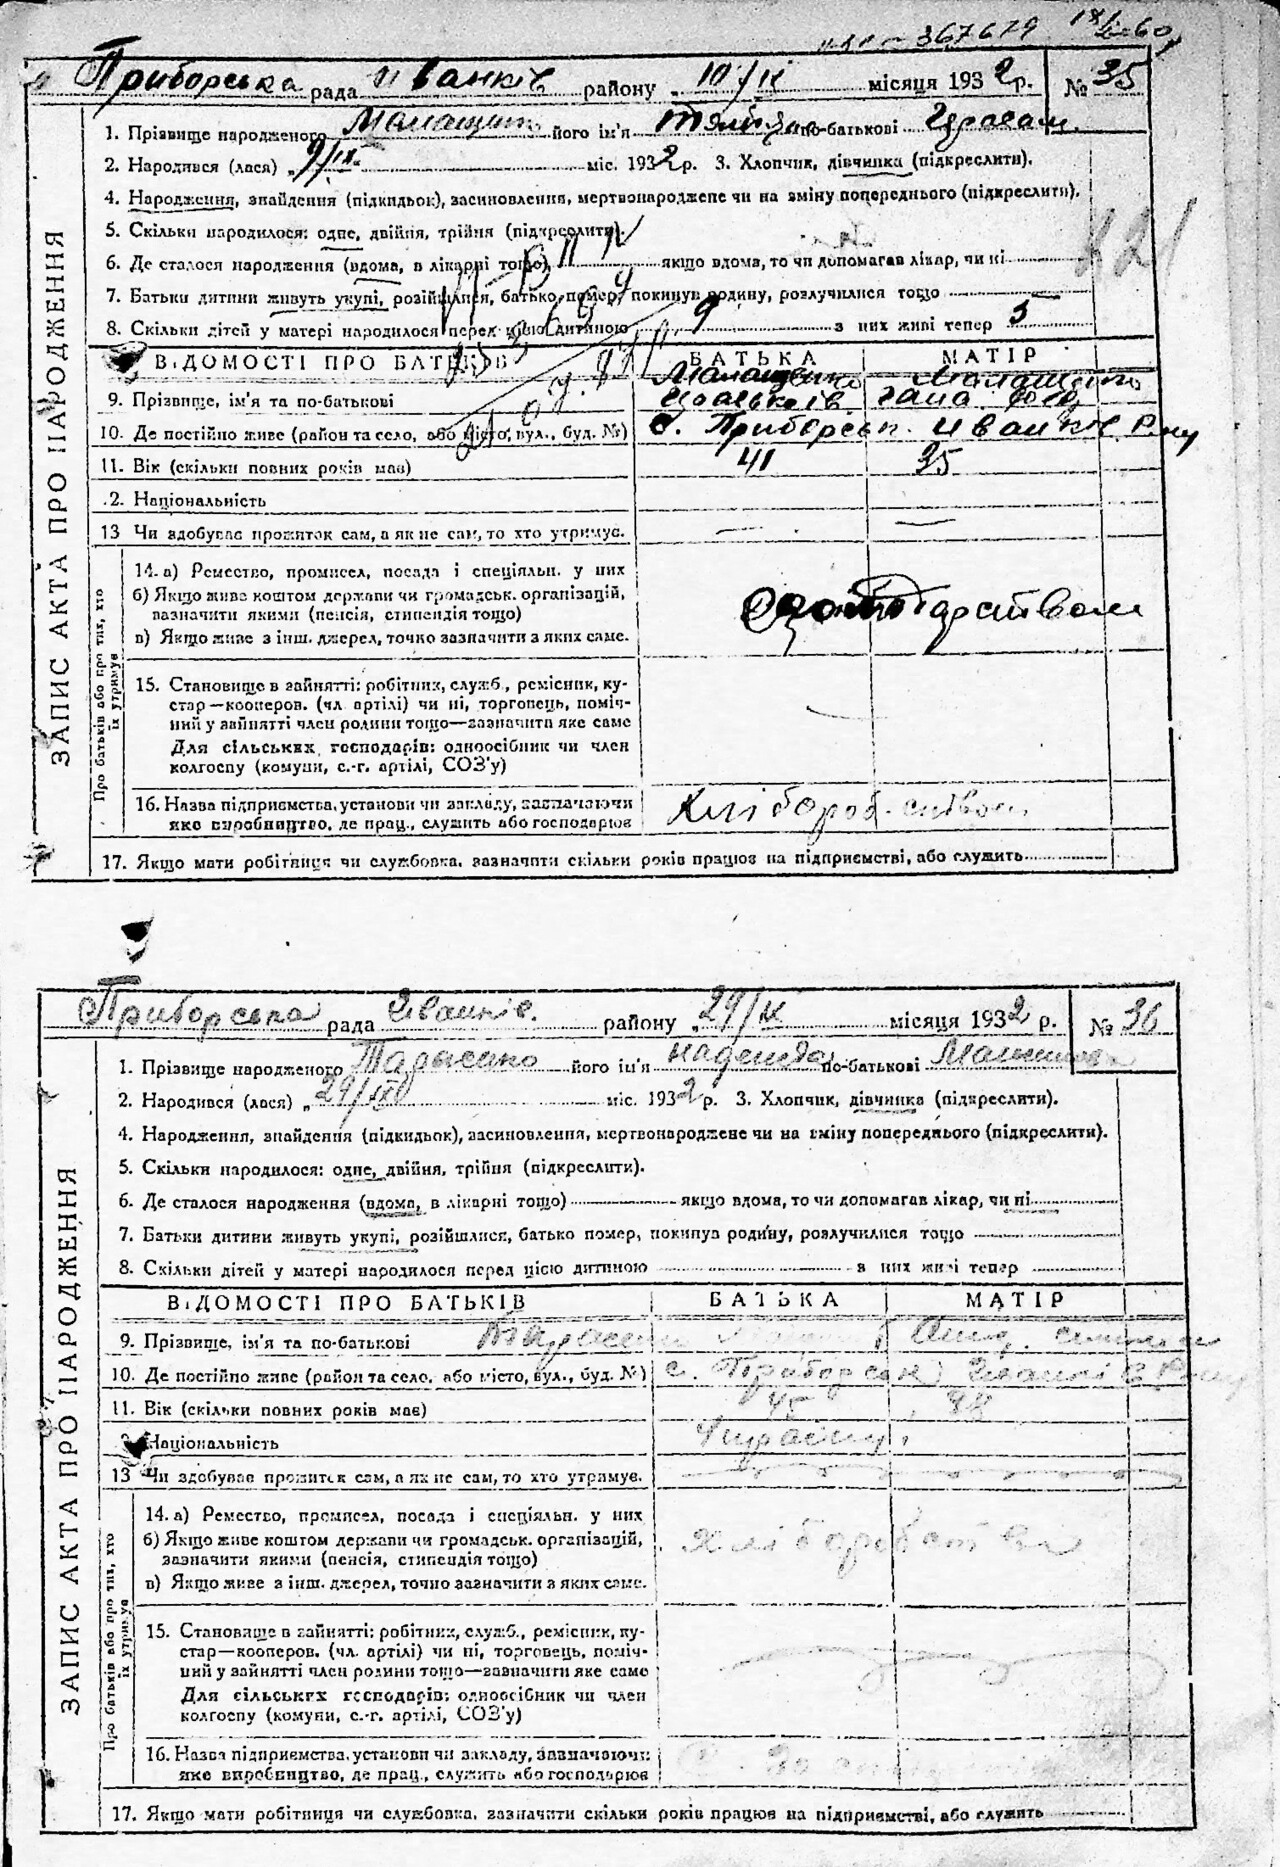 367679 18/ 60
Приборська рада Иванків району „10/IX місяця 1932 р. № 35
1. Прізвище народженого Малащенко його ім'я по-батькові
2. Народився (лася) „9/IX міс. 1932 р. 3. Хлопчик, дівчинка (підкреслити).
4. Народження, знайдення (підкидьок), засиновлення, мертвонароджене чи на зміну попереднього (підкреслити).
5. Скільки народилося: одне, двійня, трійня (підкреслити).
6. Де сталося народження (вдома, в лікарні тощо) якщо вдома, то чи допомагав лікар, чи ні
7. Батьки дитини живуть укупі, розійшлися, батько помер, покинув родину, розлучилися тощо
8. Скільки дітей у матері народилося перед цією дитиною 9 з них живі тепер 5
ВІДОМОСТІ ПРО БАТЬКІВ БАТЬКА МАТІР
9. Прізвище, ім'я та по-батькові Малащенко Малащенко
10. Де постійно живе (район та село, або місто, вул., буд. №) с. Приборськ Иванків. Р-ну
11. Вік (скільки повних років має) 41 35
.2. Національність
13 Чи здобуває прожиток сам, а як не сам, то хто утримує.
ЗАПИС АКТА ПРО НАРОДЖЕННЯ
Про батьків або про тих, хто їх утримує
14. а) Ремество, промисел, посада і спеціяльн. у них
б) Якщо живе коштом держави чи громадськ. організацій,
зазначити якими (пенсія, стипендія тощо)
в) Якщо живе з інш. джерел, точно зазначити з яких саме.
15. Становище в зайнятті: робітник, служб., ремісник, ку-
стар—кооперов. (чл. артілі) чи ні, торговець, поміч-
ний у зайнятті член родини тощо—зазначити яке саме
Для сільських господарів: одноосібник чи член
колгоспу (комуни, с.-г. артілі, СОЗ'у)
16. Назва підприємства, установи чи закладу, зазначаючи
яке виробництво, де прац., служить або господарює
Хліборобством
17. Якщо мати робітниця чи службовка, зазначити скільки років працює на підприємстві, або служить
Приборська рада Иванків. району „29/IX місяця 1932 р. № 36
1. Прізвище народженого Тарасенко його ім'я надежда по-батькові
2. Народився (лася) „29/IX міс. 1932 р. 3. Хлопчик, дівчинка (підкреслити).
4. Народження, знайдення (підкидьок), засиновлення, мертвонароджене чи на зміну попереднього (підкреслити).
5. Скільки народилося: одне, двійня, трійня (підкреслити).
6. Де сталося народження (вдома, в лікарні тощо) якщо вдома, то чи допомагав лікар, чи ні
7. Батьки дитини живуть укупі, розійшлися, батько помер, покинув родину, розлучилися тощо
8. Скільки дітей у матері народилося перед цією дитиною з них живі тепер
ВІДОМОСТІ ПРО БАТЬКІВ БАТЬКА МАТІР
9. Прізвище, ім'я та по-батькові
10. Де постійно живе (район та село, або місто, вул., буд. №) с. Приборськ Иванків Р-ну
11. Вік (скільки повних років має) 45 38
Національність
13 Чи здобуває прожиток сам, а як не сам, то хто утримує.
ЗАПИС АКТА ПРО НАРОДЖЕННЯ
Про батьків або про тих, хто їх утримує
14. а) Ремество, промисел, посада і спеціяльн. у них
б) Якщо живе коштом держави чи громадськ. організацій,
зазначити якими (пенсія, стипендія тощо)
в) Якщо живе з інш. джерел, точно зазначити з яких саме.
15. Становище в зайнятті: робітник, служб., ремісник, ку-
стар—кооперов. (чл. артілі) чи ні, торговець, поміч-
ний у зайнятті член родини тощо—зазначити яке саме
Для сільських господарів: одноосібник чи член
колгоспу (комуни, с.-г. артілі, СОЗ'у)
16. Назва підприємства, установи чи закладу, зазначаючи
яке виробництво, де прац., служить або господарює
17. Якщо мати робітниця чи службовка, зазначити скільки років працює на підприємстві, або служить